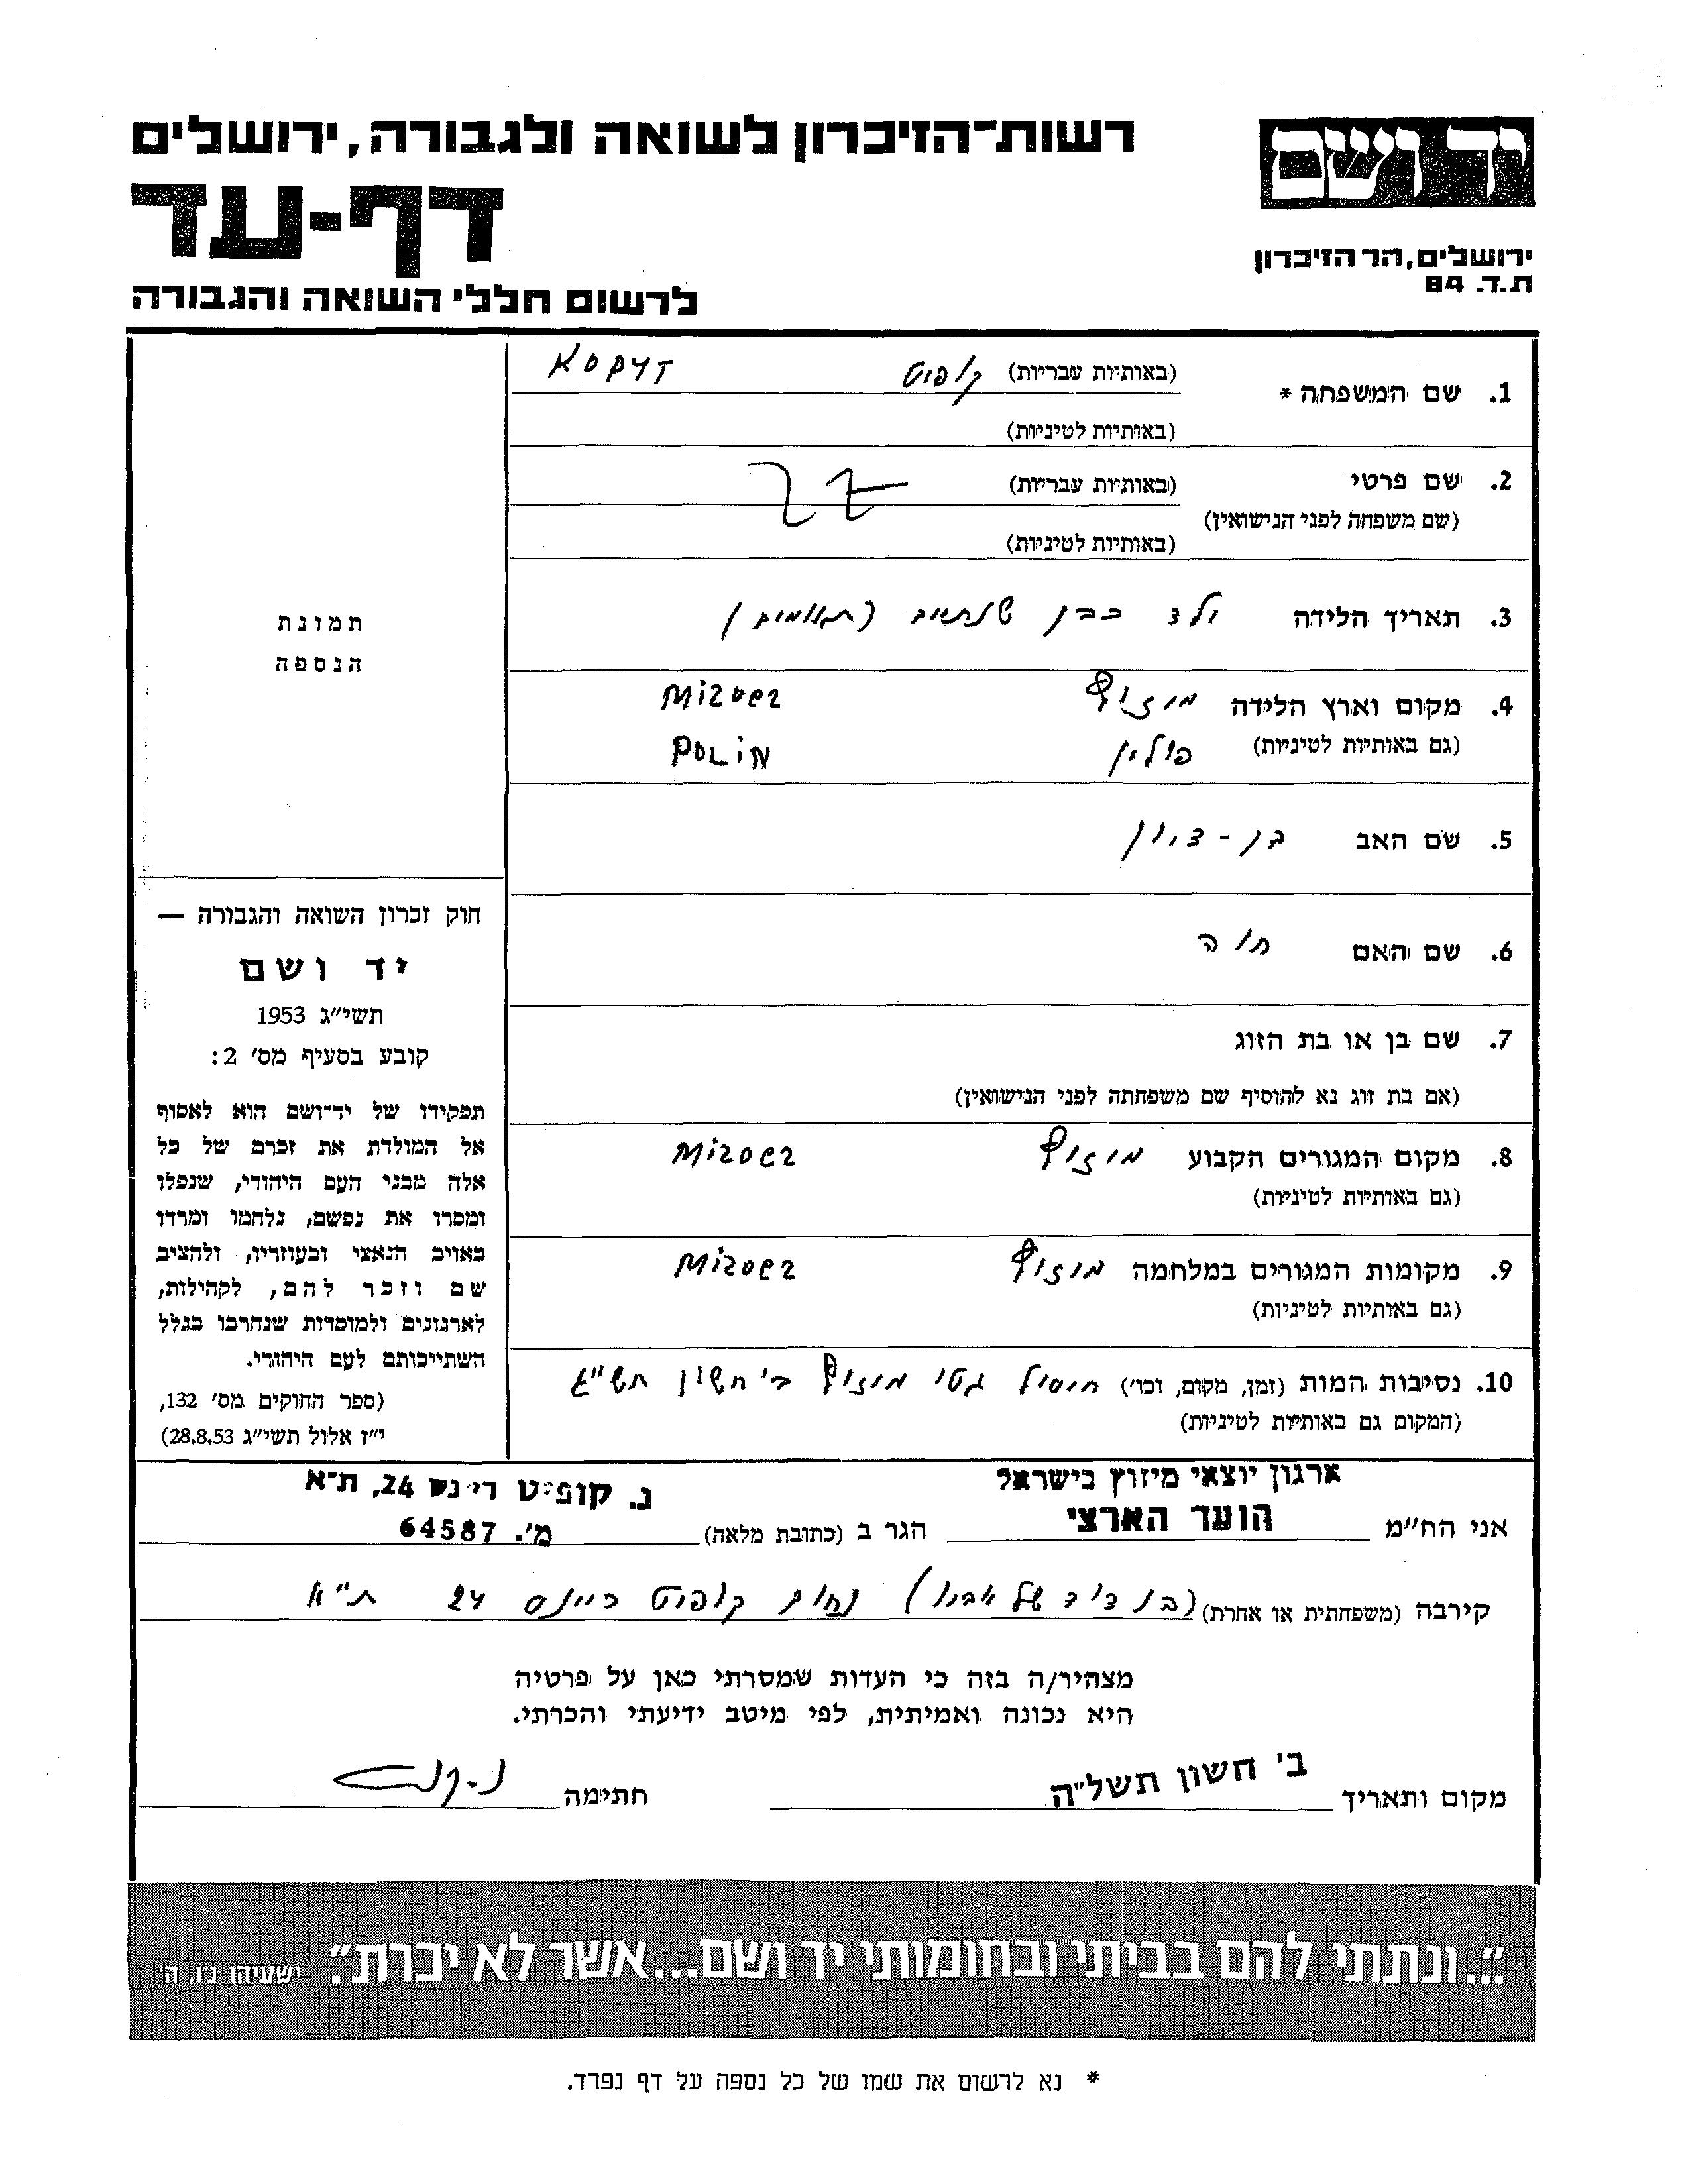 רשות־הזיכרון לשואה ולגבורה, ירושלים
יד ושם
דף-עד
ירושלים, הר הזיכרון
ת.ד. 84
לרשום חללי השואה והגבורה
1. שם המשפחה * (באותיות עבריות) קופיט KOPYT
(באותיות לטיניות)
2. שם פרטי (באותיות עבריות)
(שם משפחה לפני הנישואין)
(באותיות לטיניות)
3. תאריך הלידה ולד כבן שנתיים (תאומים)
4. מקום וארץ הלידה מיזוץ Mizocz
(גם באותיות לטיניות) פולין POLiN
5. שם האב בן-ציון
6. שם האם חוה
7. שם בן או בת הזוג
(אם בת זוג נא להוסיף שם משפחתה לפני הנישואין)
8. מקום המגורים הקבוע מיזוץ Mizocz
(גם באותיות לטיניות)
9. מקומות המגורים במלחמה מיזוץ Mizocz
(גם באותיות לטיניות)
10. נסיבות המות (זמן, מקום, וכו') חיסול גטו מיזוץ ב' חשון תש"ג
(המקום גם באותיות לטיניות)
תמונת
הנספה
חוק זכרון השואה והגבורה —
יד ושם
תשי"ג 1953
קובע בסעיף מס' 2:
תפקידו של יד־ושם הוא לאסוף
אל המולדת את זכרם של כל
אלה מבני העם היהודי, שנפלו
ומסרו את נפשם, נלחמו ומרדו
באויב הנאצי ובעוזריו, ולהציב
שם וזכר להם, לקהילות,
לארגונים ולמוסדות שנחרבו בגלל
השתייכותם לעם היהודי.
(ספר החוקים מס' 132,
י"ז אלול תשי"ג 28.8.53)
ארגון יוצאי מיזוץ בישראל נ. קופיט ריינס 24, ת־א
אני הח"מ הועד הארצי הגר ב (כתובת מלאה) מ'. 64587
קירבה (משפחתית או אחרת) (בן דוד של אביו) נחום קופיט ריינס 24 ת"א
מצהיר/ה בזה כי העדות שמסרתי כאן על פרטיה
היא נכונה ואמיתית, לפי מיטב ידיעתי והכרתי.
מקום ותאריך ב' חשון תשל"ה חתימה
"...ונתתי להם בביתי ובחומותי יד ושם...אשר לא יכרת". ישעיהו נ"ו, ה'
* נא לרשום את שמו של כל נספה על דף נפרד.